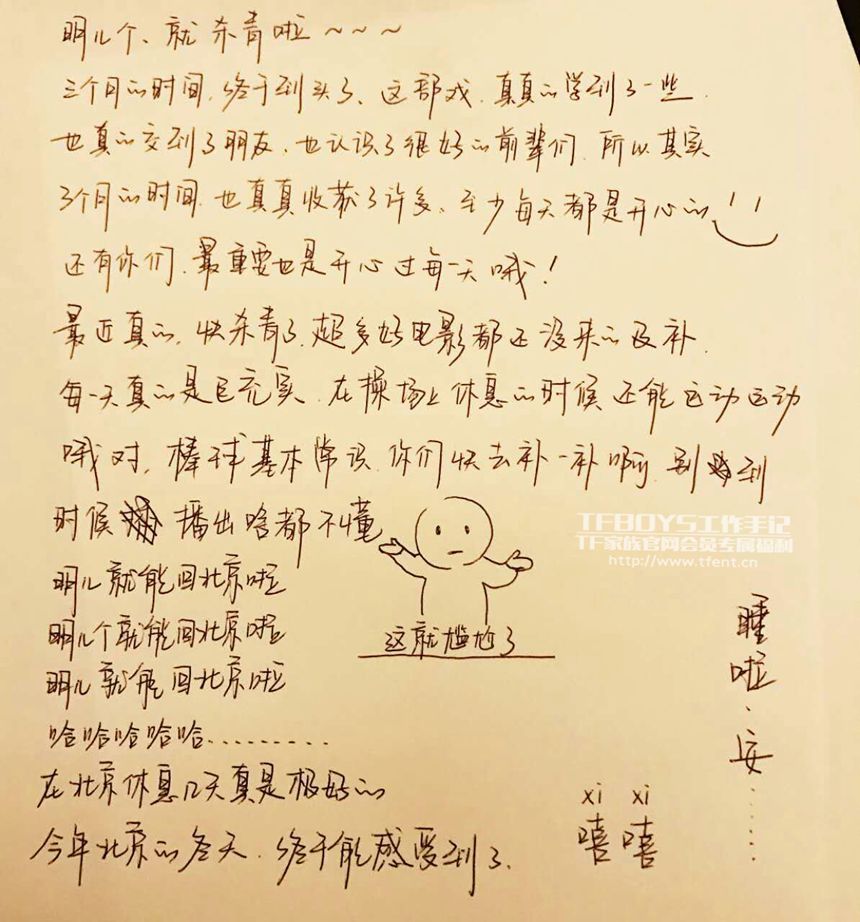 明儿个、就杀青啦~~~
三个月的时间,终于到头了、这部戏,真真的学到了一些.
也真的交到了朋友,也认识了很好的前辈们,所以其实
3个月的时间.也真真收获了许多、至少每天都是开心的
还有你们,最重要也是开心过每一天哦!
最近真的,快杀青了,超多好电影都还没来的及补.
每一天真的是巨充实.在操场上休息的时候还能运动运动
哦对,棒球基本常识,你们快去补一补啊,别到
时候播出啥都不懂
这就尴尬了
明儿就能回北京啦
明儿个就能回北京啦
明儿就能回北京啦
哈哈哈哈哈.........
在北京休息几天真是极好的
今年北京的冬天.终于能感受到了.
xi xi
嘻嘻
睡啦.安......
TFBOYS工作手记
TF家族官网会员专属福利
http://www.tfent.cn